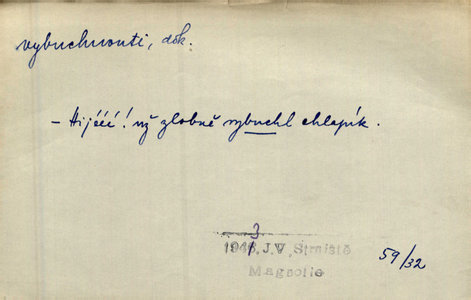 vybuchnouti, dok.
– Hijééé! už zlobně vybuchl chlapík.
3
1948, J.V. Strniště
Magnolie
59/32